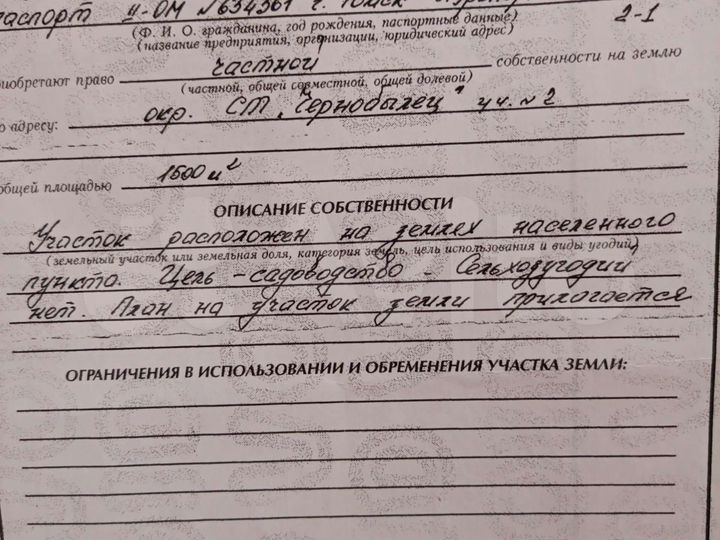 паспорт II-ОМ №634361 г. Томск
2-1
(Ф. И. О. гражданина, год рождения, паспортные данные)
(название предприятия, организации, юридический адрес)
приобретают право частной собственности на землю
(частной, общей совместной, общей долевой)
о адресу: окр. СТ "Чернобылец" уч. №2
общей площадью 1500 м²
ОПИСАНИЕ СОБСТВЕННОСТИ
Участок расположен на землях населенного
(земельный участок или земельная доля, категория земель, цель использования и виды угодий)
пункта. Цель - садоводство - Сельхозугодий
нет. План на участок земли прилогается
ОГРАНИЧЕНИЯ В ИСПОЛЬЗОВАНИИ И ОБРЕМЕНЕНИЯ УЧАСТКА ЗЕМЛИ: